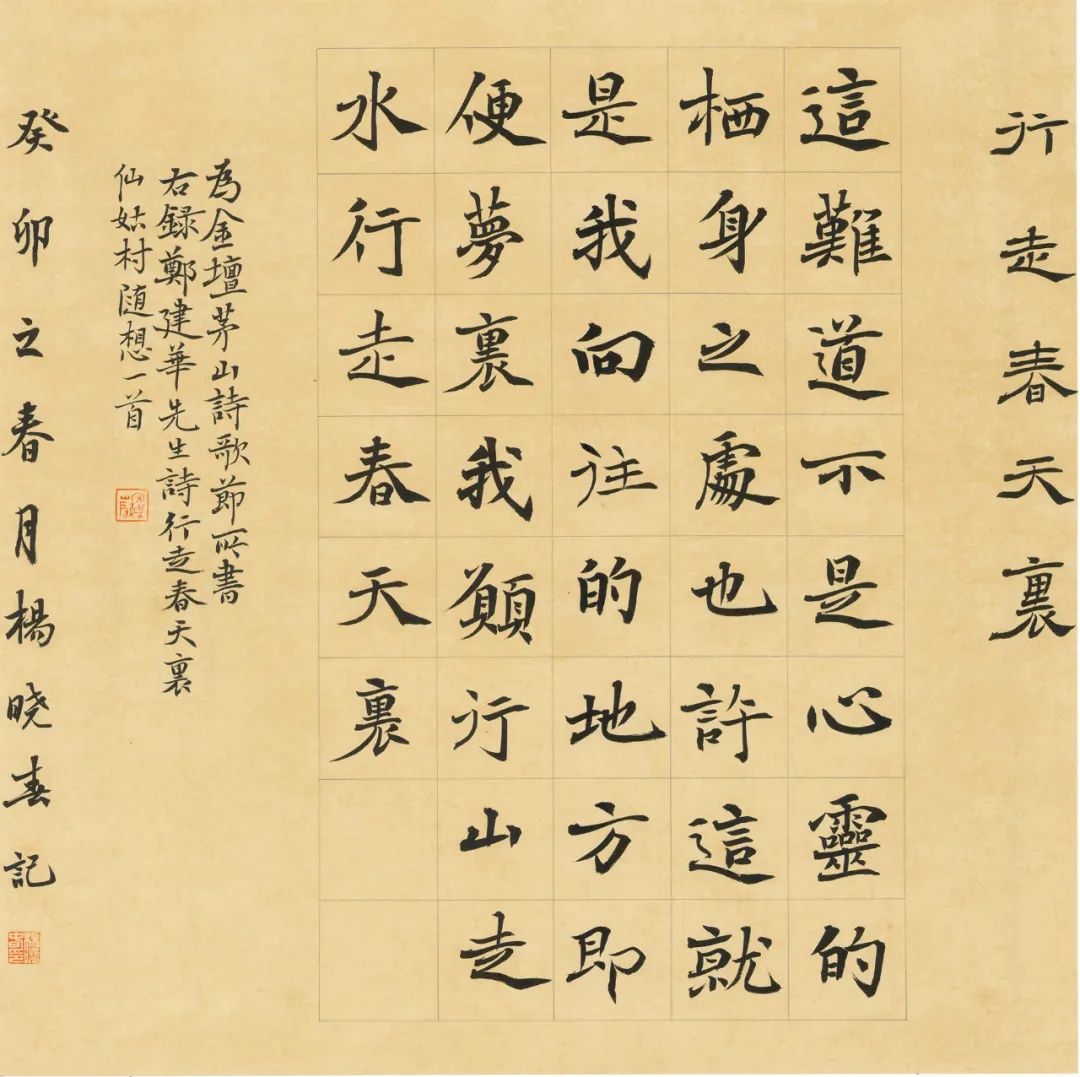 行走春天裏
這難道不是心靈的
栖身之處也許這就
是我向往的地方即
便夢裏我願行山走
水行走春天裏
為金壇茅山詩歌節所書
右録鄭建華先生詩行走春天裏
仙姑村随想一首
癸卯之春月楊曉春記